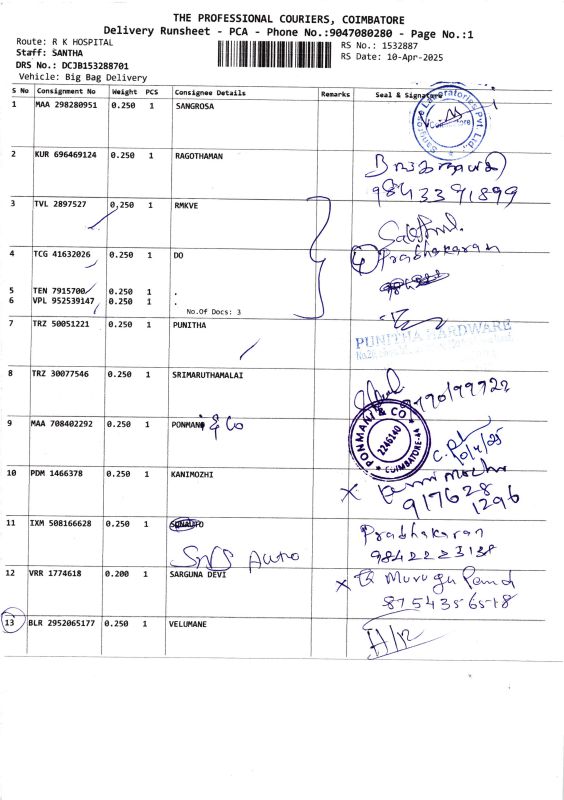 THE PROFESSIONAL COURIERS, COIMBATORE
Delivery Runsheet - PCA - Phone No.:9047080280 - Page No.:1
Route: R K HOSPITAL
RS No.: 1532887
Staff: SANTHA
RS Date: 10-Apr-2025
DRS No.: DCJB153288701
Vehicle: Big Bag Delivery
S No Consignment No Weight PCS Consignee Details Remarks Seal & Signature
1 MAA 298280951 0.250 1 SANGROSA
2 KUR 696469124 0.250 1 RAGOTHAMAN
9843391899
3 TVL 2897527 0.250 1 RMKVE
4 TCG 41632026 0.250 1 DO
4 Prabhakaran
5 TEN 7915700 0.250 1 .
6 VPL 952539147 0.250 1 .
No.Of Docs: 3
7 TRZ 50051221 0.250 1 PUNITHA
PUNITHA HARDWARE
8 TRZ 30077546 0.250 1 SRIMARUTHAMALAI
9 MAA 708402292 0.250 1 PONMANI & Co
PONMANI & CO
2246140
COIMBATORE-44
10/4/25
10 PDM 1466378 0.250 1 KANIMOZHI
917628
1296
11 IXM 508166628 0.250 1
Prabhakaran
SNS Auto
12 VRR 1774618 0.200 1 SARGUNA DEVI
8754356518
13 BLR 2952065177 0.250 1 VELUMANE